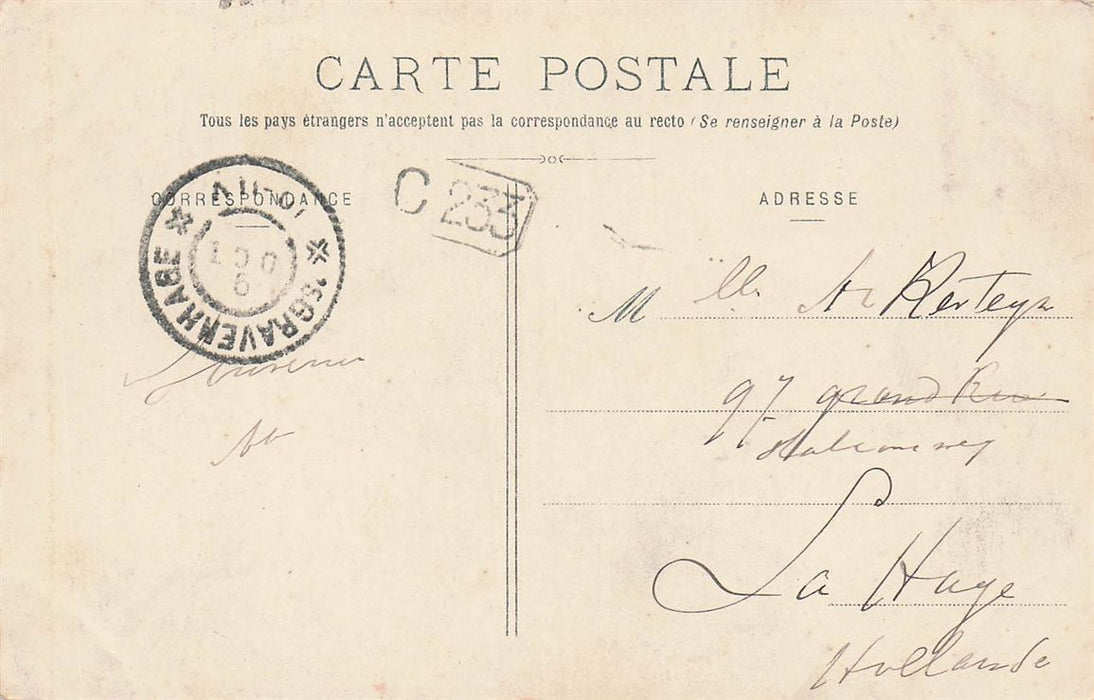 CARTE POSTALE
Tous les pays étrangers n'acceptent pas la correspondance au recto (Se renseigner à la Poste)
CORRESPONDANCE
ADRESSE
'SGRAVENHAGE
OCT
C 233
Souvenir
M lle
97 grand Rue
La Haye
Hollande